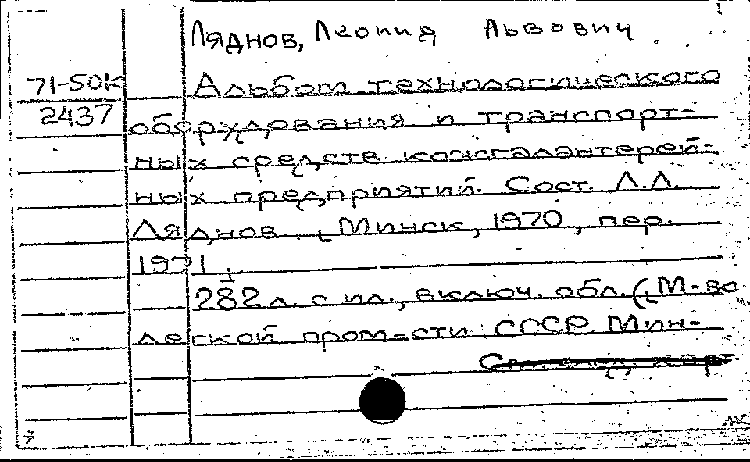 Ляднов, Леонид Львович
71-50к Альбом технологического
2437 оборудования и транспорт-
ных средств кожгалантерей-
ных предприятий. Сост. Л.Л.
Ляднов. [Минск, 1970, пер.
1971].
282 л. с ил., включ. обл. (М-во
легкой пром-сти СССР. Мин-